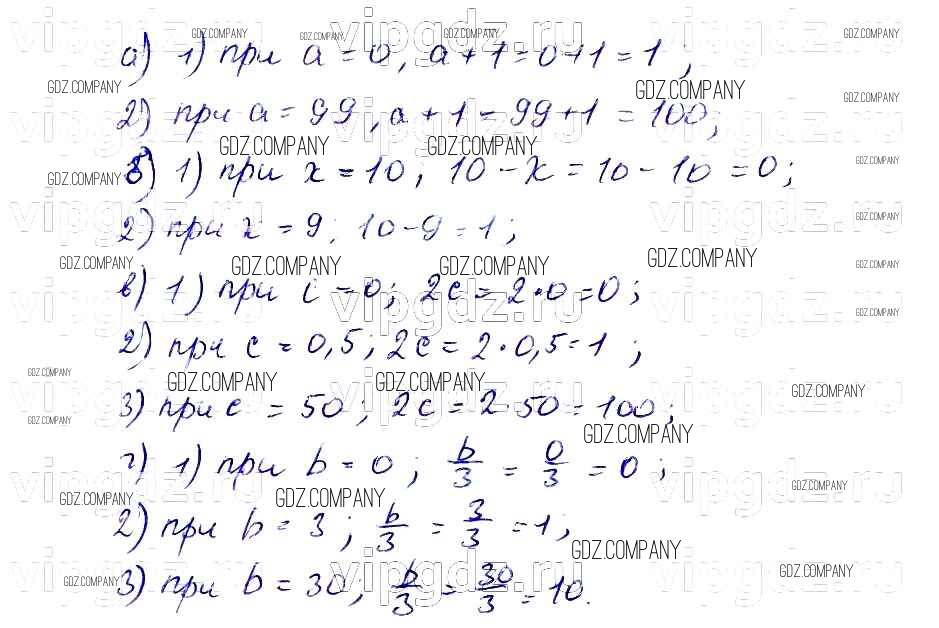 а) 1) при a = 0, a + 1 = 0 + 1 = 1 ;
2) при a = 99, a + 1 = 99 + 1 = 100;
б) 1) при x = 10, 10 - x = 10 - 10 = 0;
2) при x = 9, 10 - 9 = 1;
в) 1) при c = 0; 2c = 2 · 0 = 0;
2) при c = 0,5; 2c = 2 · 0,5 = 1 ;
3) при c = 50; 2c = 2 · 50 = 100;
г) 1) при b = 0; b/3 = 0/3 = 0 ;
2) при b = 3; b/3 = 3/3 = 1;
3) при b = 30; b/3 = 30/3 = 10.
vipgdz.ru
GDZ.COMPANY